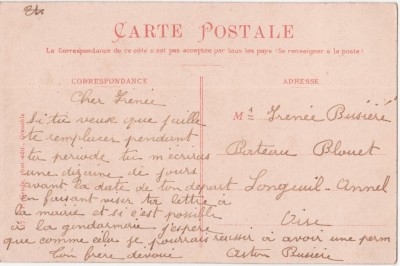 CARTE POSTALE
La Correspondance de ce côté n'est pas acceptée par tous les pays (Se renseigner à la poste)
CORRESPONDANCE
ADRESSE
Cher Irénée
Si tu veux que j'aille
te remplacer pendant
ta période tu m'écriras
une dizaine de jours
avant la date de ton départ
en faisant viser ta lettre à
la mairie et si c'est possible
à la gendarmerie j'espère
que comme celas je pourrais réussir à avoir une perm
Ton frère dévoué
Mr Irénée Busière
Bateau Blouet
Longueil-Annel
Oise
Gaston Busière